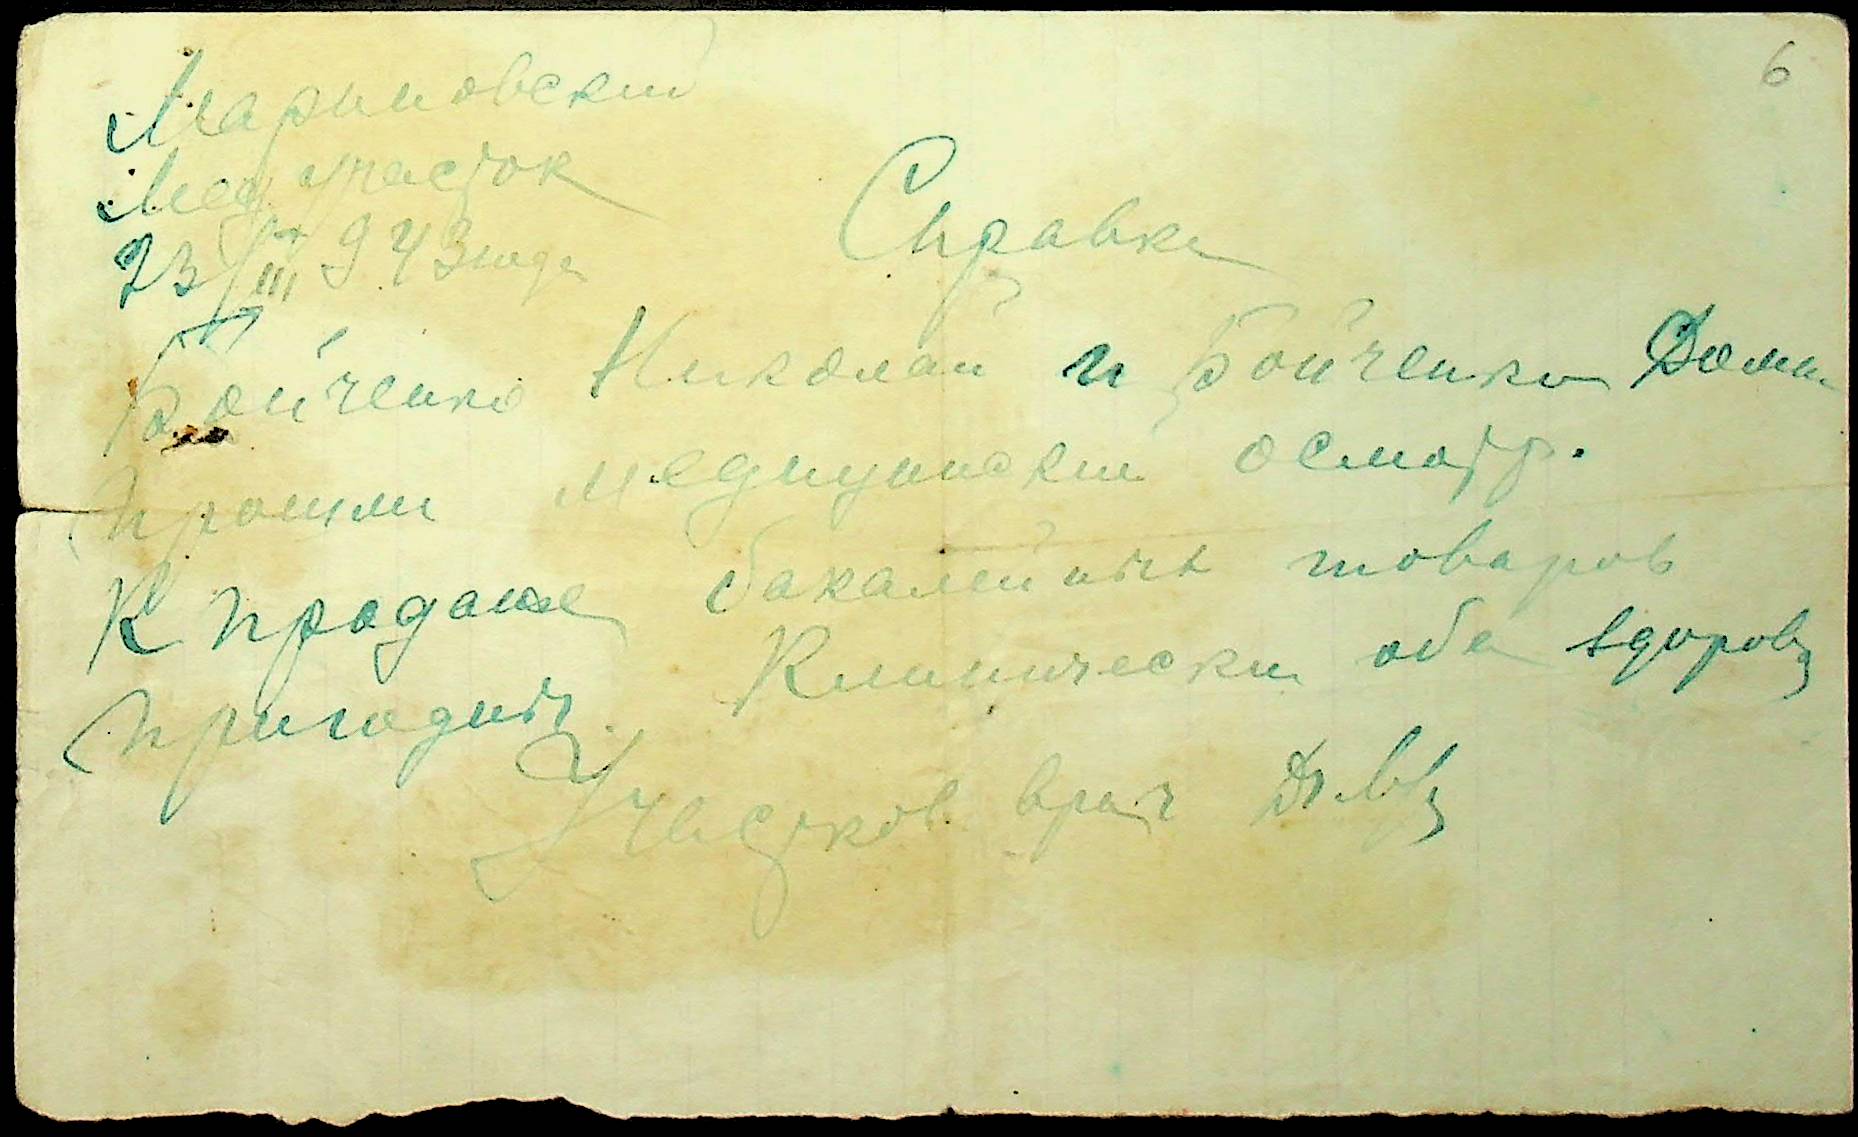 6
Марьиовский
Мед участок
23/III 943 года
Справка
Бойченко Николай и Бойченко Домна
прошли медицинский осмотр.
К продаже бакалейных товаров
пригодны. Клинически оба здоровы
Участков врач